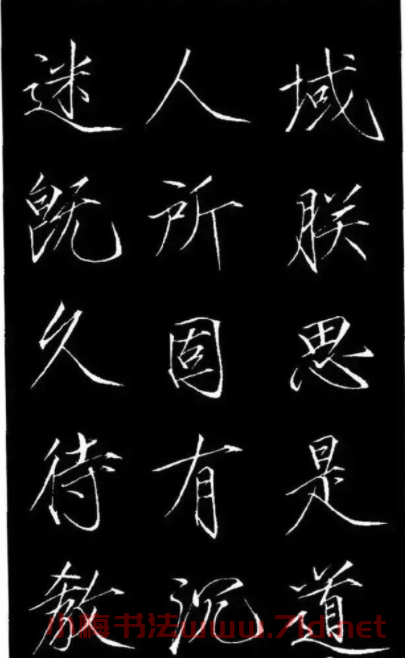 域朕思是道
人所固有沉
迷既久待教
小梅书法www.7ld.net